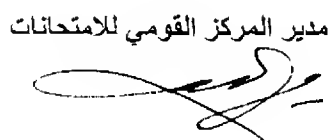 مدير المركز القومي للامتحانات